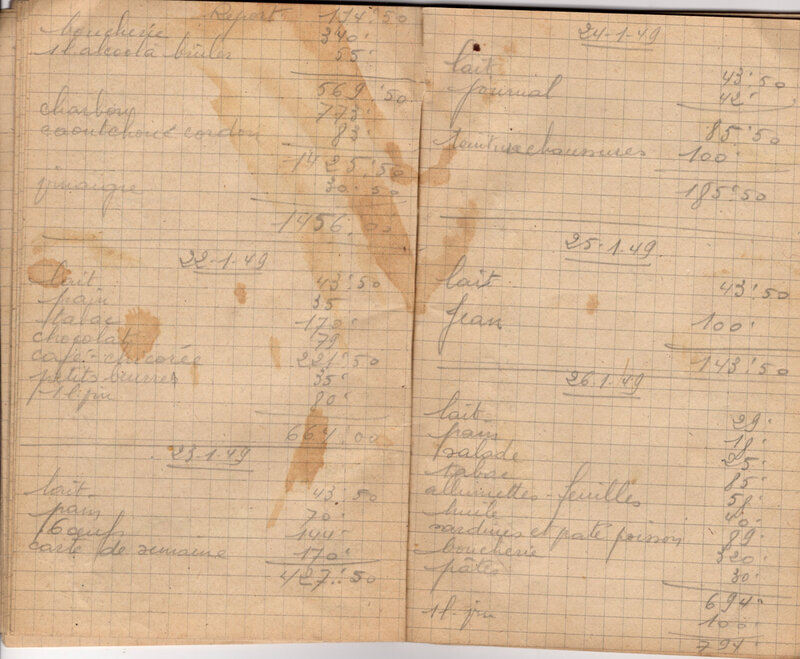 Report 174.50
boucherie 340.
1 l alcool à brûler 55.
569.50
charbon 773.
caoutchouc cordon 83.
1425.50
vinaigre 30.50
1456.00
22-1-49
lait 43.50
pain 35
tabac 170.
chocolat 79
café-chicorée 221.50
petits beurres 35.
1 l. vin 80.
664.00
23-1-49
lait 43.50
pain 70.
6 œufs 144.
carte de semaine 170.
427.50
24-1-49
lait 43.50
journal 42.
85.50
chaussures 100.
185.50
25-1-49
lait 43.50
Jean 100.
143.50
26.1.49
lait 29.
pain 18.
salade 25.
tabac 85.
allumettes-feuilles 58.
huile 40.
sardines et pâté poisson 89.
boucherie 320.
pâtes 30.
694.
1 l. vin 100.
794.